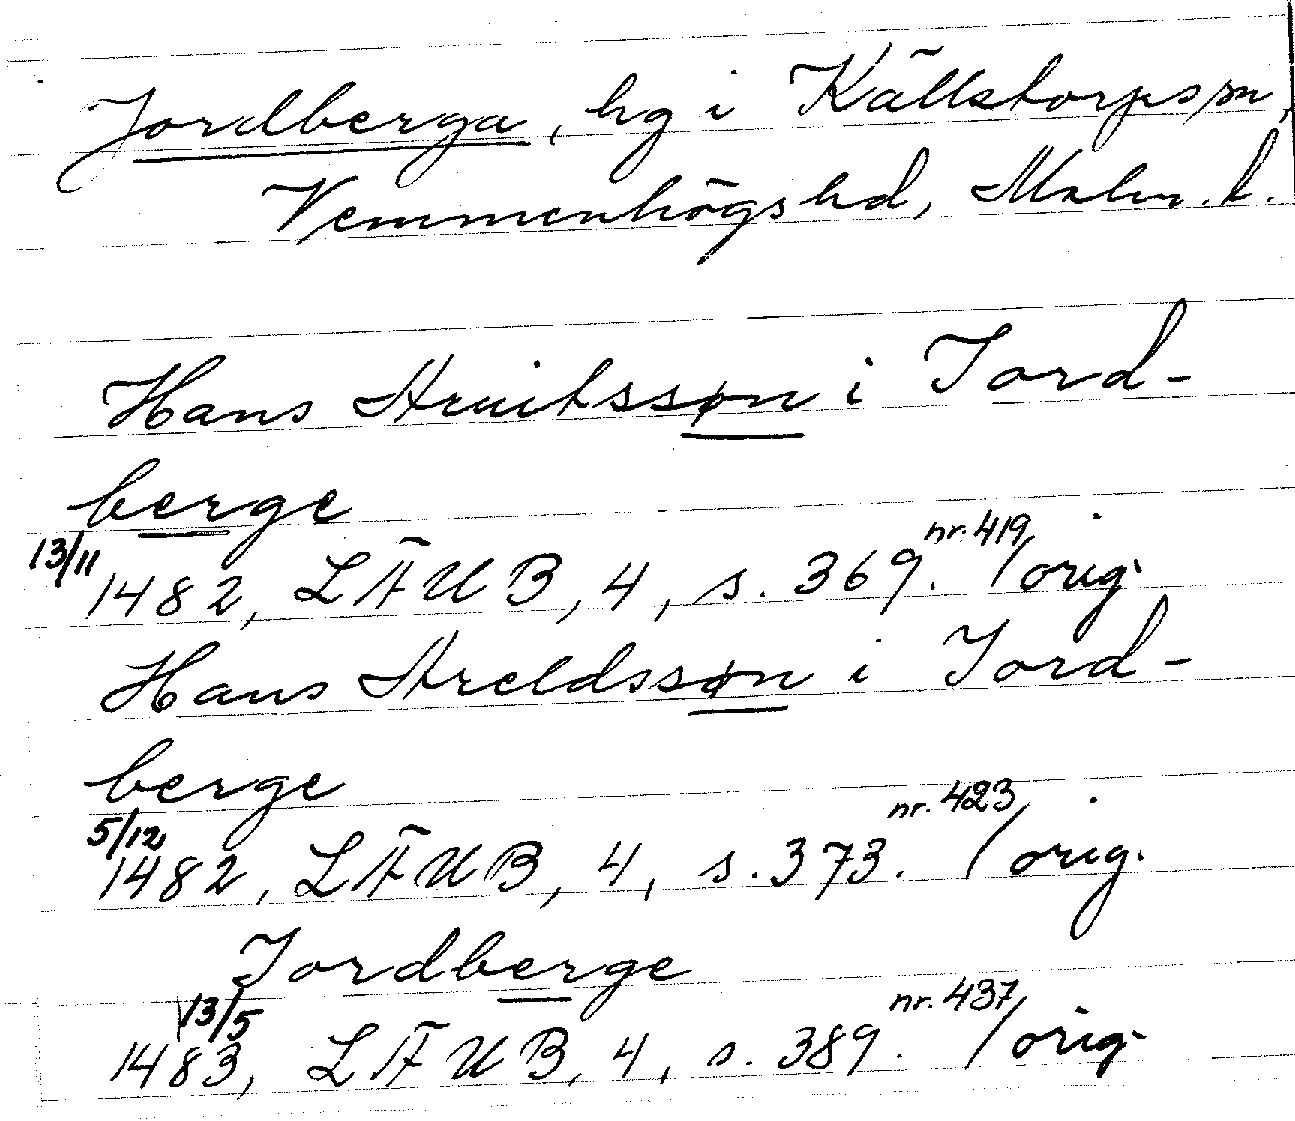 Jordberga, hg i Källstorps sn,
Vemmenhögs hd, Malm. l.
Hans Aruitssøn i Jord-
berge
13/11 1482, LÄUB, 4, s. 369. nr. 419 / orig.
Hans Areldssøn i Jord-
berge
5/12 1482, LÄUB, 4, s. 373. nr. 423 / orig.
Jordberge
13/5 1483, LÄUB, 4, s. 389. nr. 437 / orig.